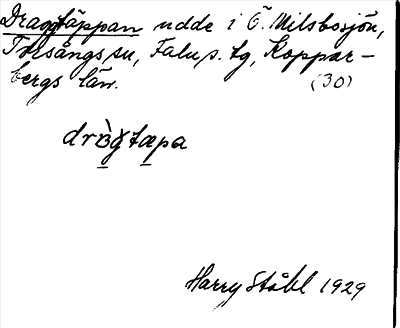 Draggtäppan udde i Ö. Milsbosjön,
Torsångs sn, Falu s. tg, Koppar-
bergs län. (30)
Harry Ståhl 1929